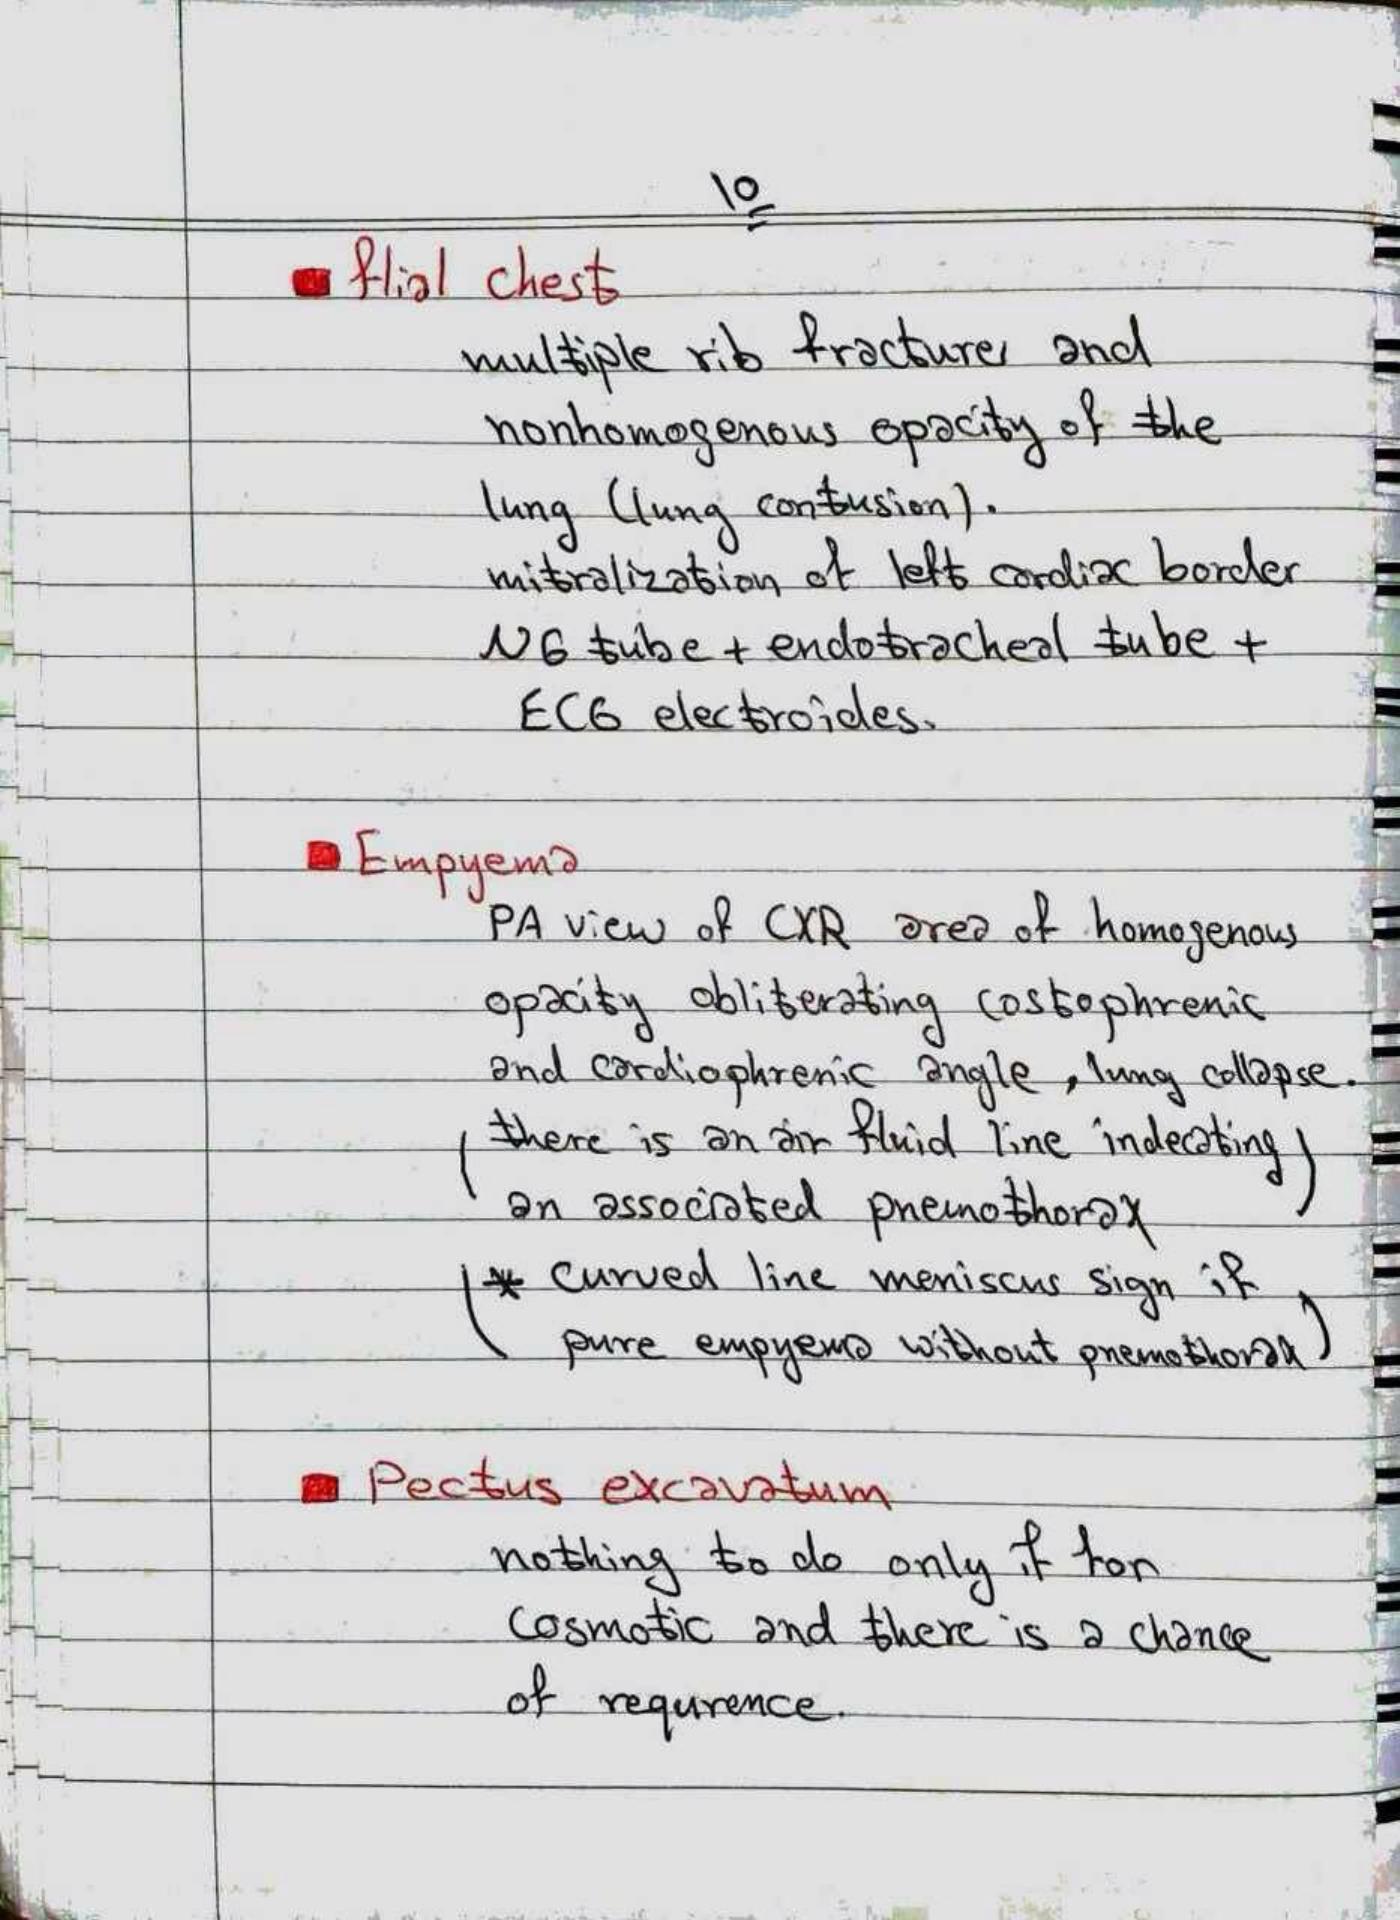 10
flial chest
multiple rib fractures and
nonhomogenous opacity of the
lung (lung contusion).
mitralization of left cardiac border
NG tube + endotracheal tube +
ECG electroides.
Empyema
PA view of CXR area of homogenous
opacity obliterating costophrenic
and cardiophrenic angle, lung collapse.
(there is an air fluid line indecating
an associated pnemothorax)
(* curved line meniscus sign if
pure empyema without pnemothorax)
Pectus excavatum
nothing to do only if for
cosmotic and there is a chance
of requrence.